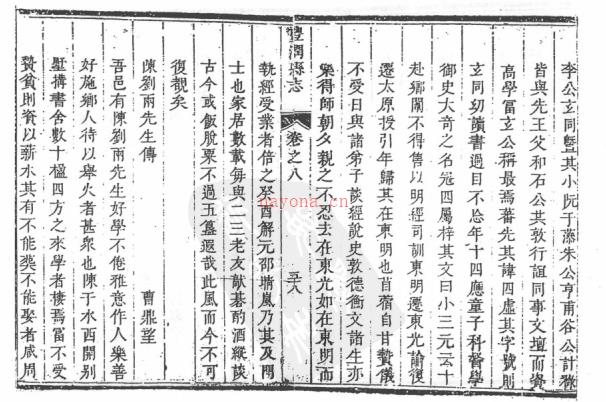 李公玄同暨其小阮于藻朱公亨甫谷公計
皆與先王父和石公共敦行誼同事文壇而資
高學富玄公稱最焉蕃先其諱四虛其字號則
玄同幼讀書過目不忘年十四應童子科督學
御史大奇之名冠四屬梓其文曰小三元云十
赴鄉闈不得售以明經司訓東明遷東光諭復
遷太原授引年歸其在東明也苜宿自甘贄儀
不受日與諸弟子談經說史敦德衡文諸生亦
樂得師朝夕親之不忍去在東光如在東明而
執經受業者倍之癸酉解元邵晴嵐乃其及門
士也家居數載每與二三老友獻碁酌酒縱談
古今或飯脫粟不過五簋遐哉此風而今不可
復覩矣
豐潤縣志
卷之八
五八
陳劉兩先生傳
曹鼎望
吾邑有陳劉兩先生好學不倦雅意作人樂善
好施鄉人待以舉火者甚眾也陳于水西開別
墅搆書舍數十楹四方之來學者棲焉富不受
贄貧則資以薪水其有不能葬不能娶者咸周
nayona.cn